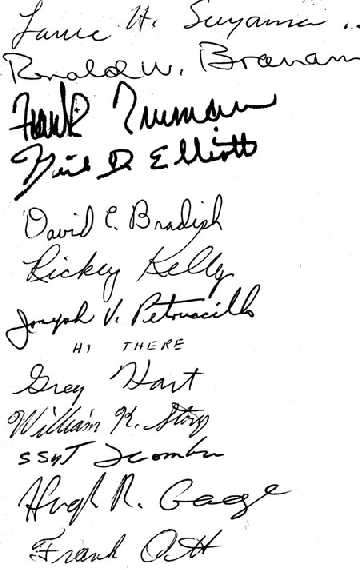 H. Suyama
Ronald W. Branam
Frank Truman
D Elliott
David C. Bradish
Rickey Kelly
Joseph V. Petruccillo
HI THERE
Greg Hart
William R. Story
SSgT
Hugh R. Gage
Frank Ott